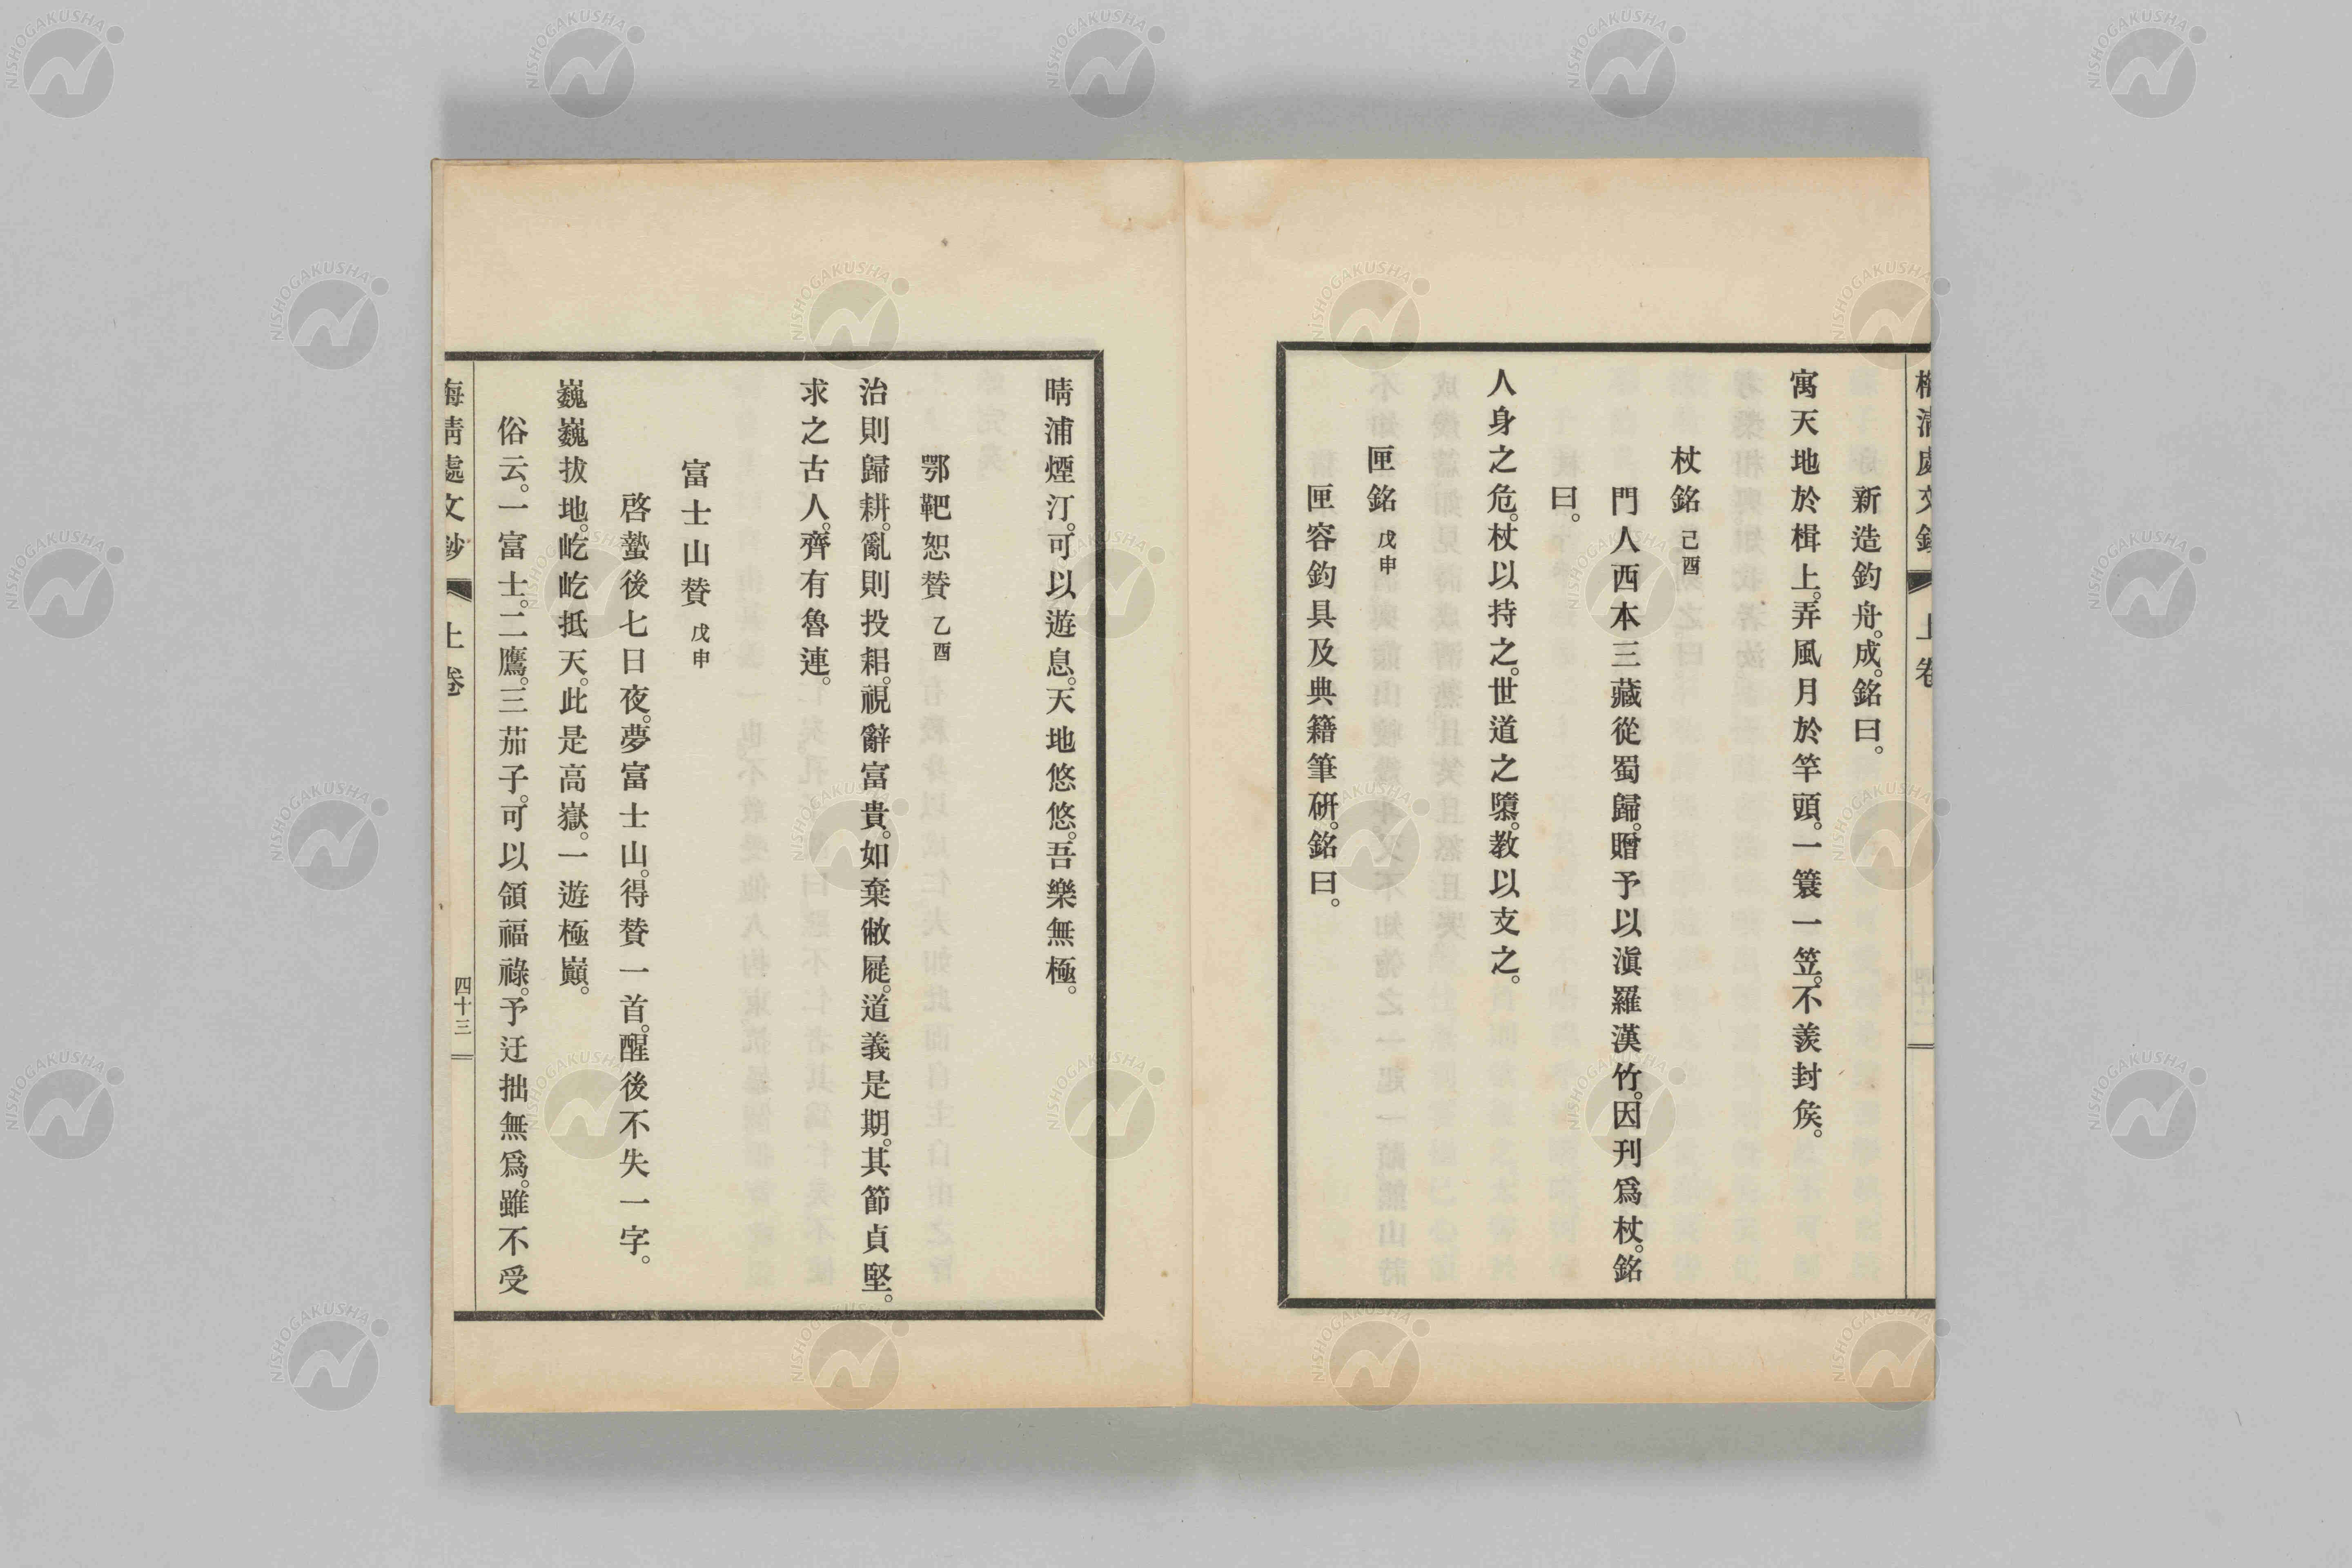 新造釣舟。成。銘曰。
寓天地於楫上。弄風月於竿頭。一簑一笠。不羨封矦。
杖銘 己酉
門人西本三藏從蜀歸。贈予以滇羅漢竹。因刊爲杖。銘
曰。
人身之危。杖以持之。世道之隳。教以支之。
匣銘 戊申
匣容釣具及典籍筆硏。銘曰。
晴浦煙汀。可以遊息。天地悠悠。吾樂無極。
鄂靶恕贊 乙酉
治則歸耕。亂則投耜。視辭富貴。如棄敝屣。道義是期。其節貞堅。
求之古人。齊有魯連。
富士山贊 戊申
啓蟄後七日夜。夢富士山。得贊一首。醒後不失一字。
巍巍拔地。屹屹抵天。此是高嶽。一遊極巓。
俗云。一富士。二鷹。三茄子。可以領福祿。予迂拙無爲。雖不受
梅淸處文鈔 上卷 四十三
NISHOGAKUSHA